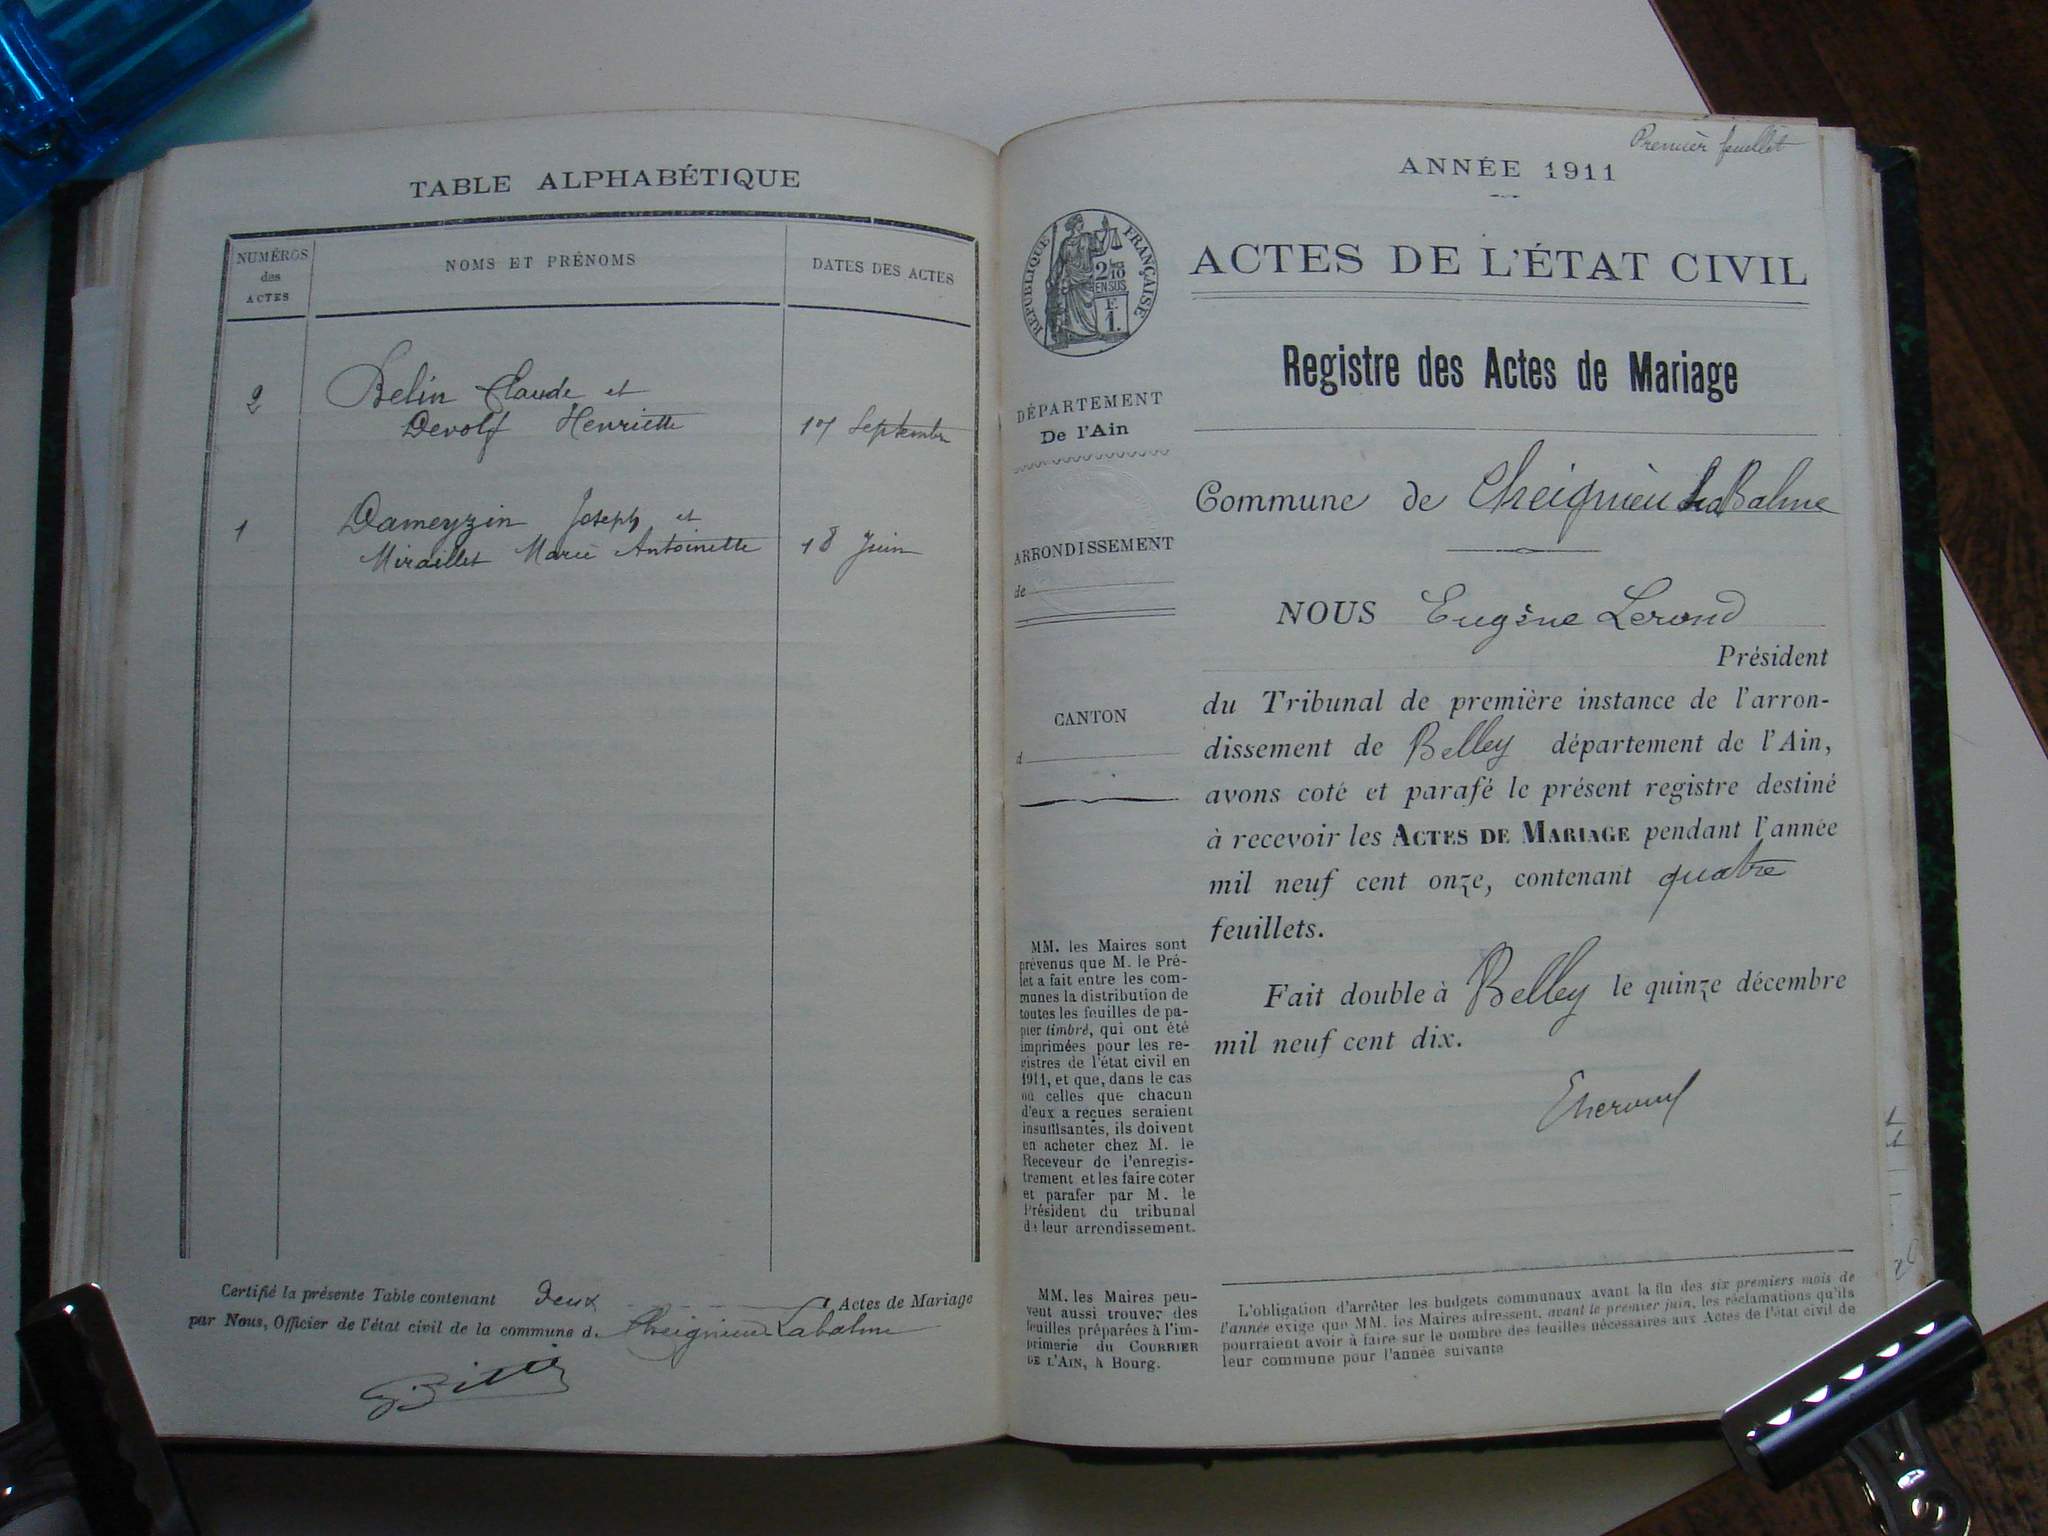 TABLE ALPHABÉTIQUE
NUMÉROS
des
ACTES
NOMS ET PRÉNOMS
DATES DES ACTES
2
Belin Claude et
Devolf Henriette
17 Septembre
1
Dameyzin Joseph et
Miraillet Marie Antoinette
18 Juin
Certifié la présente Table contenant deux Actes de Mariage
par Nous, Officier de l'état civil de la commune d. Cheignieu Labalme
Premier feuillet
ANNÉE 1911
RÉPUBLIQUE FRANÇAISE
2/10
EN SUS
F.
1.
ACTES DE L'ÉTAT CIVIL
Registre des Actes de Mariage
DÉPARTEMENT
De l'Ain
Commune de Cheignieu La Balme
ARRONDISSEMENT
de
CANTON
d
NOUS Eugène Lerond
Président
du Tribunal de première instance de l'arron-
dissement de Belley département de l'Ain,
avons coté et parafé le présent registre destiné
à recevoir les ACTES DE MARIAGE pendant l'année
mil neuf cent onze, contenant quatre
feuillets.
Fait double à Belley le quinze décembre
mil neuf cent dix.
MM. les Maires sont
prévenus que M. le Pré-
fet a fait entre les com-
munes la distribution de
toutes les feuilles de pa-
pier timbré, qui ont été
imprimées pour les re-
gistres de l'état civil en
1911, et que, dans le cas
où celles que chacun
d'eux a reçues seraient
insuffisantes, ils doivent
en acheter chez M. le
Receveur de l'enregis-
trement et les faire coter
et parafer par M. le
Président du tribunal
de leur arrondissement.
MM. les Maires peu-
vent aussi trouver des
feuilles préparées à l'im-
primerie du COURRIER
DE L'AIN, à Bourg.
L'obligation d'arrêter les budgets communaux avant la fin des six premiers mois de
l'année exige que MM. les Maires adressent, avant le premier juin, les réclamations qu'ils
pourraient avoir à faire sur le nombre des feuilles nécessaires aux Actes de l'état civil de
leur commune pour l'année suivante